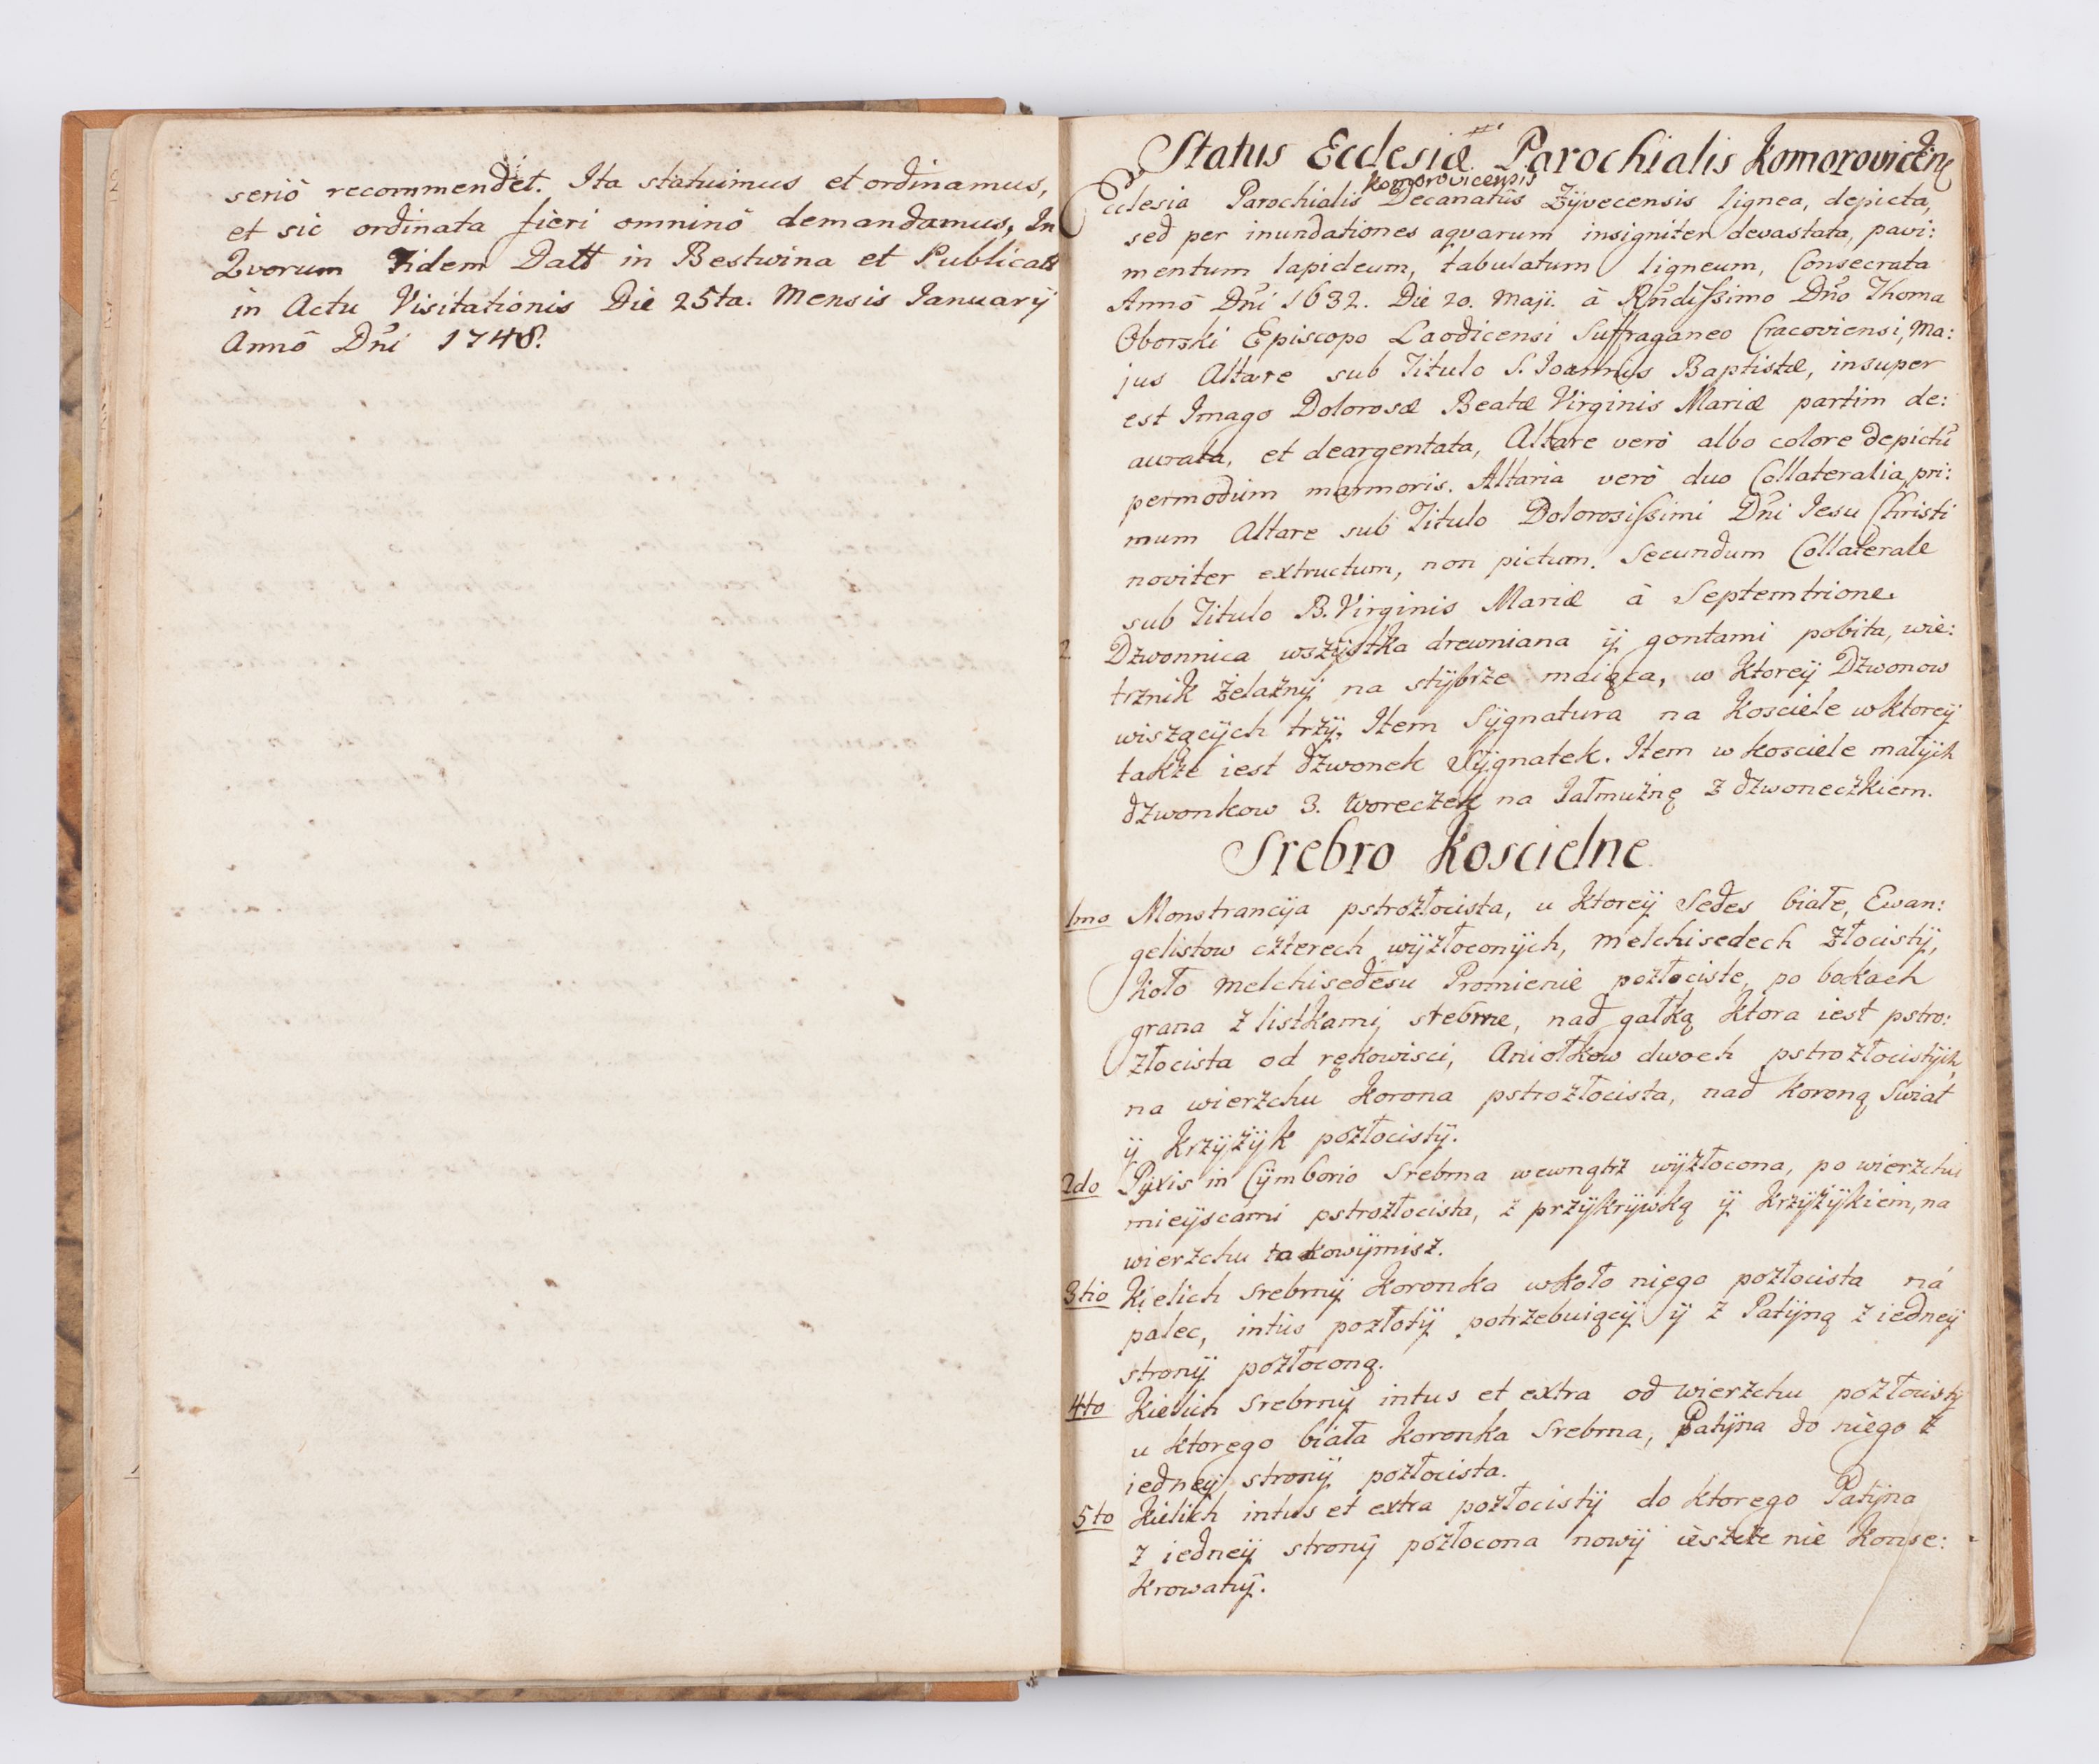 seriò recommendet. Ita statuimus et ordinamus,
et sic ordinata fieri omninò demandamus, In
Qvorum Fidem Datt in Bestwina et Publicatt
in Actu Visitationis Die 25ta. Mensis Januarÿ
Annô Dñi 1748.
Status Ecclesiæ Parochialis Komorovicen̄
Komorovicensis
Ecclesia Parochialis Decanatûs Zÿvecensis lignea, depicta,
sed per inundationes aqvarum insigniter devastata, pavi:
mentum lapideum, tabulatum ligneum, Consecrata
Annô Dñi 1632. Die 20. Maji. à Rñdissimo Dño Thoma
Oborski Episcopo Laodicensi Suffraganeo Cracoviensi, Ma:
jus Altare sub Titulo S. Joannis Baptistæ, insuper
est Imago Dolorosæ Beatæ Virginis Mariæ partim de:
aurata, et deargentata, Altare verò albo colore depictū
permodum marmoris. Altaria verò duo Collateralia, pri:
mum Altare sub Titulo Dolorosissimi Dñi Jesu Christi
noviter extructum, non pictum. Secundum Collaterale
sub Titulo B. Virginis Mariæ à Septemtrione.
2 Dzwonnica wszÿstka drewniana ÿ gontami pobita, wie:
trznik żelaznÿ na sztÿbrze maiąca, w ktoreÿ Dzwonow
wiszącÿch trzÿ, Item Sÿgnatura na Kosciele w ktoreÿ
także iest dzwonek Sÿgnatek. Item w kosciele małÿch
dzwonkow 3. Woreczek na Jałmużnę z dzwoneczkiem.
Srebro Koscielne
1mo Monstrancÿa pstrozłocista, u ktoreÿ Sedes białe, Ewan:
gelistow czterech wÿzłoconÿch, Melchisedech złocistÿ,
koło Melchisedesu Promienie pozłociste, po bokach
grana z listkami srebrne, nad gałką ktora iest pstro:
złocista od rękowisci, Aniołkow dwoch pstrozłocistÿch,
na wierzchu korona pstrozłocista, nad koroną Swiat
ÿ krzÿżÿk pozłocistÿ.
2do Pÿxis in Cÿmborio Srebrna wewnątrz wÿzłocona, po wierzchu
mieÿscami pstrozłocista, z przÿkrÿwką ÿ krzÿżÿkiem, na
wierzchu takowÿmisz.
3tio Kielich Srebrnÿ koronka wkoło niego pozłocista ná
palec, intùs pozłotÿ potrzebuiącÿ ÿ z Patÿną z iedneÿ
stronÿ pozłoconą.
4to Kielich Srebrnÿ intus et extra od wierzchu pozłocistÿ
u ktorego biała koronka Srebrna, Patÿna do niego z
iedneÿ stronÿ pozłocista.
5to Kielich intus et extra pozłocistÿ do ktorego Patÿna
z iedneÿ stronÿ pozłocona nowÿ ieszcze nie konse:
krowanÿ.